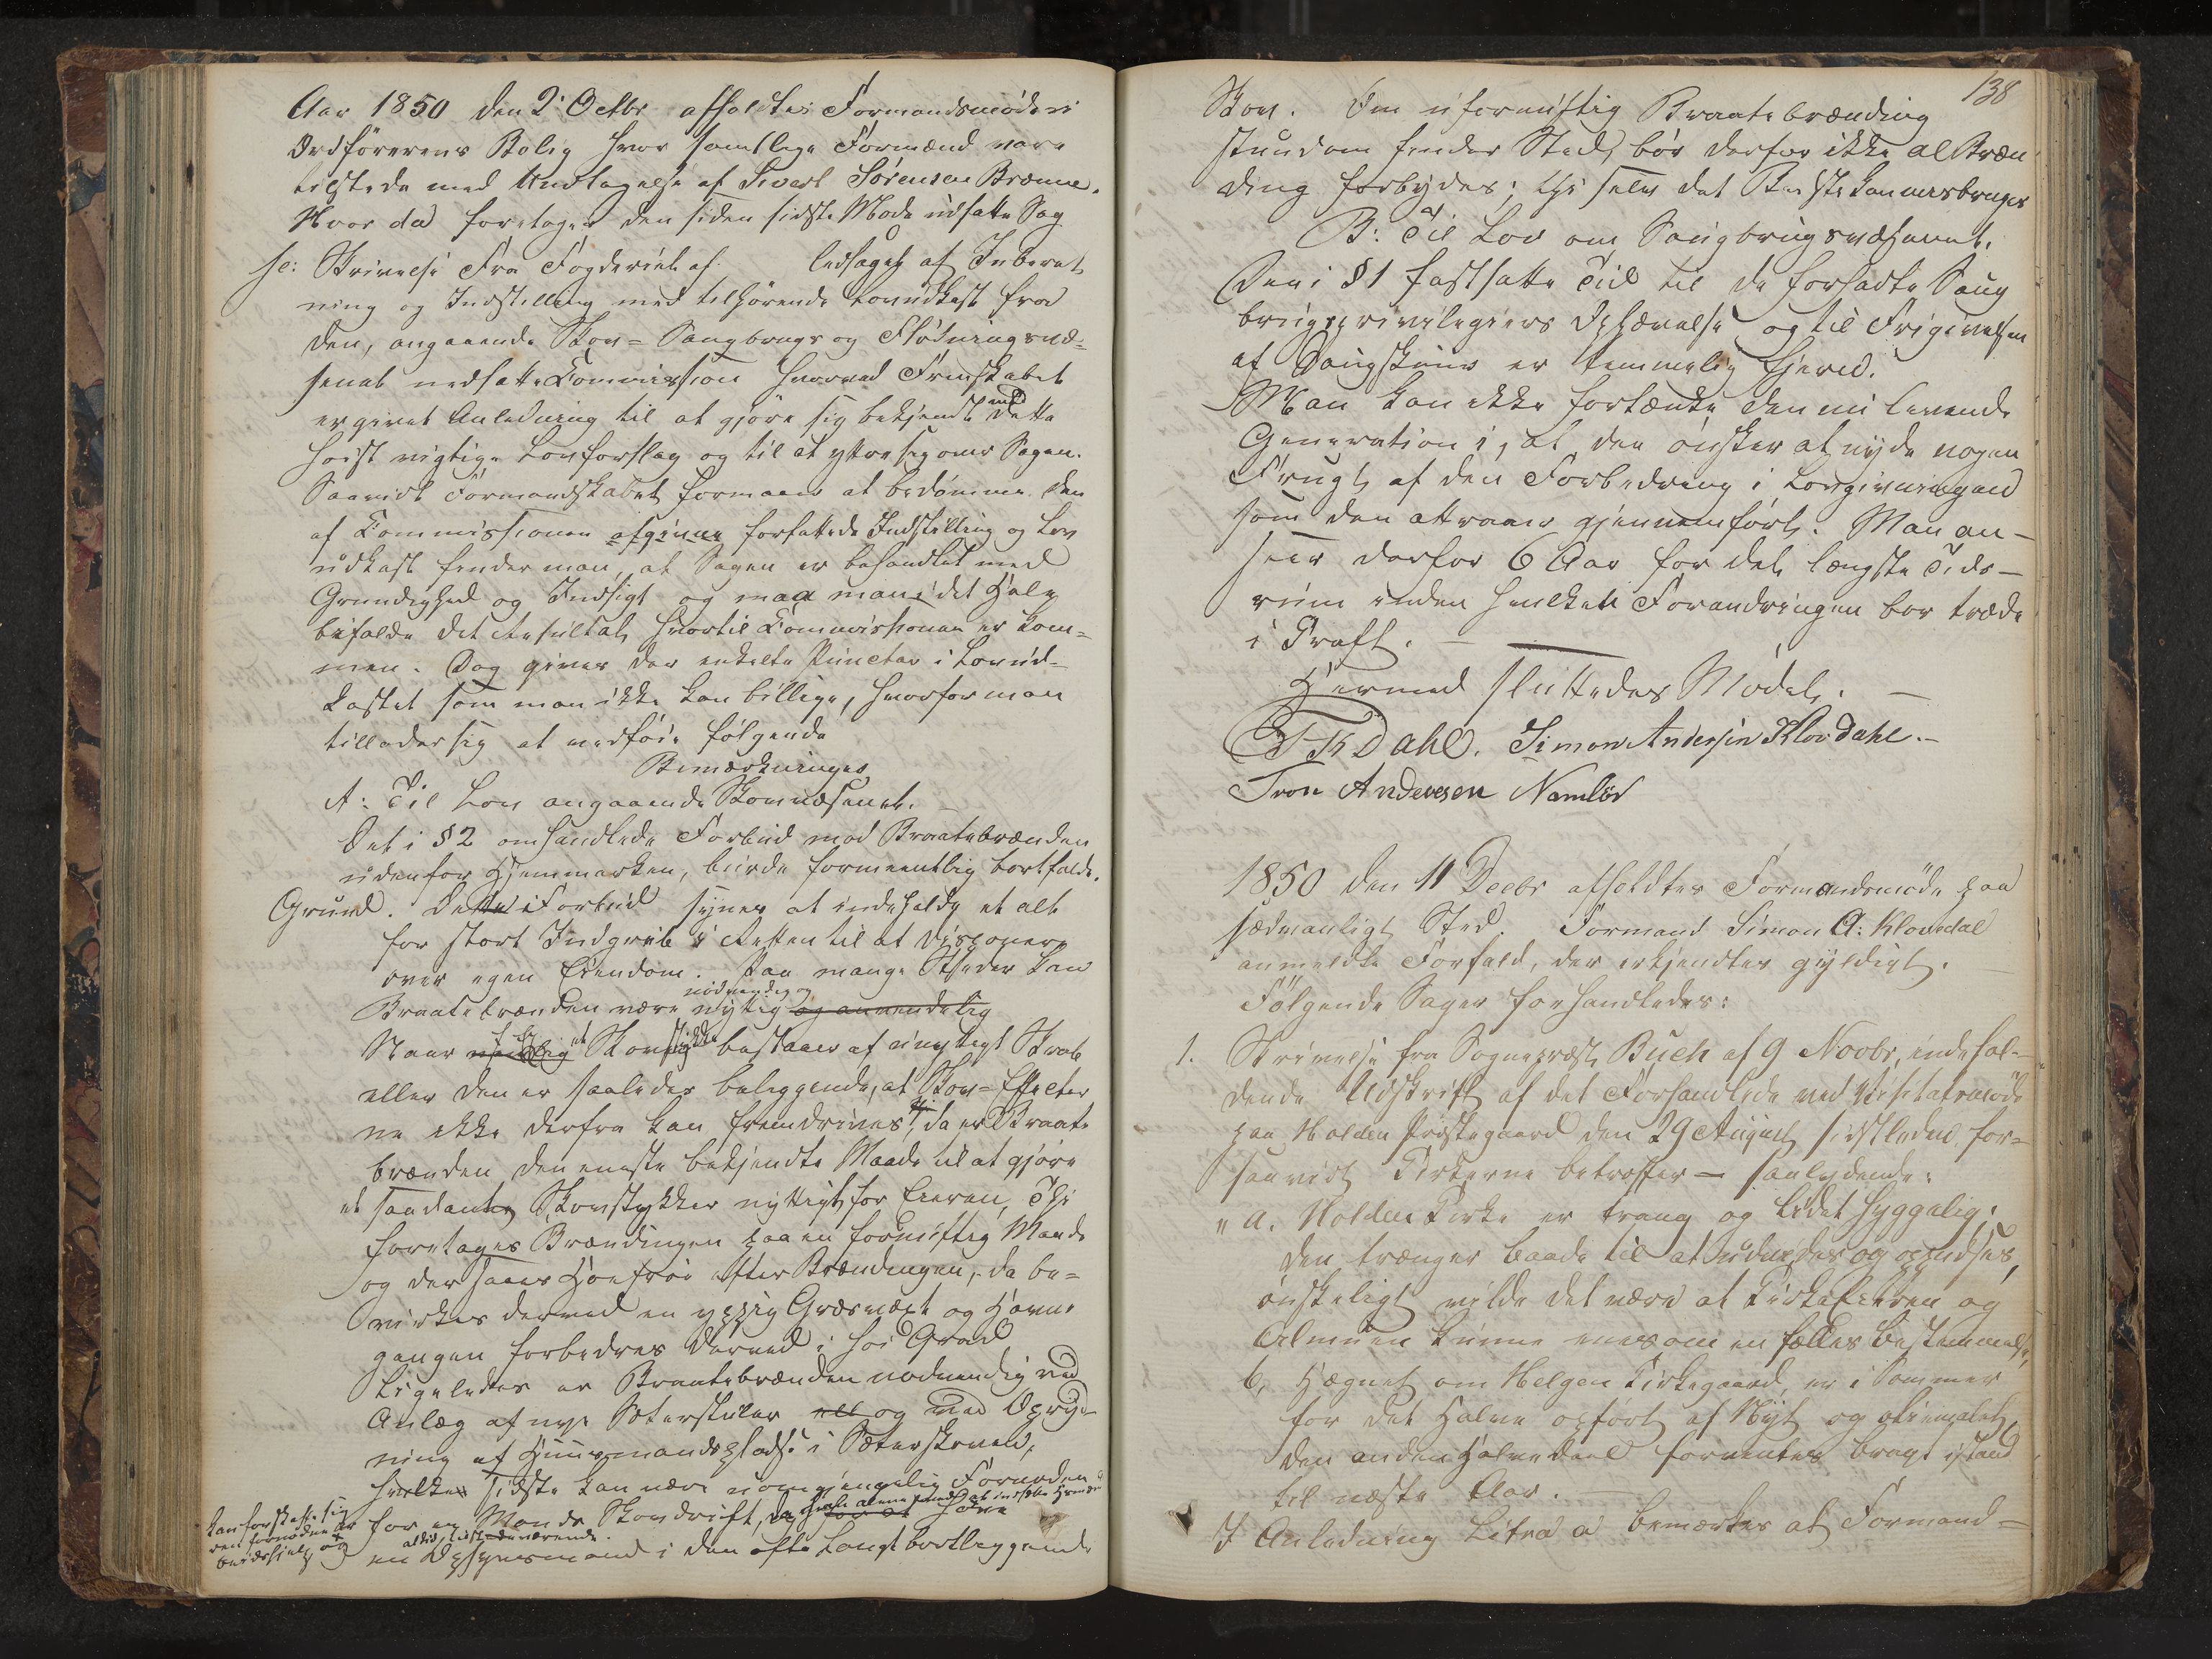 Aar 1850 den 2' Octbr afholdtes Formandsmøde i
Ordførerens Bolig hvor samtlige Formænd vare
tilstede med Undtagelse af Sivert Sørensen Brænne.
Hvor da foretoges den siden sidste Møde udsatte Sag
sc: Skrivelse fra Fogderiet af ledsaget af Inberet
ning og Indstilling med tilhørende Lovudkast fra
den, angaaende Skov- Saugbrugs og Flødningsvæ-
senet nedsatte Commission hvorved Formskabet
er givet Anledning til at gjøre sig bekjendt med dette
høist vigtige Lovforslag og til at yttre sig over Sagen.
Saavidt Formandskabet formaaer at bedømme den
af Commissionen afgivne forfattede Indstilling og Lov
udkast finder man, at Sagen er behandlet med
Grundighed og Indsigt og maa man i det Hele
bifalde det Resultat, hvortil Commissionen er kom-
men. Dog gives der enkelte Puncter i Lovud-
kastet som man ikke kan billige, hvorfor man
tillader sig at vedføie følgende
Bemærkninger
A: Til Lov angaaende Skovvæsenet.
Det i §2 omhandlede Forbud mod Braatebrænden
udenfor Hjemmarken, burde formeentlig bortfalde.
Grund. Dette Forbud synes at indeholde et alt
for stort Indgreb i Retten til at disponere
over egen Eiendom. Paa mange Steder kan
nødvendig og
Braatebrænden være nyttig og anvendelig
Naar et Skovstykke bestaaer af unyttigt Skrab
eller den er saaledes beliggende, at Skov-Effecter
ne ikke derfra kan fremdrives, da er Braate
brænden den eneste bekjendte Maade til at gjøre
et saadant Skovstykker nyttigt for Eieren, Thi
foretages Brændingen paa en fornuftig Maade
og der saaes Høefrøe efter Brændingen, da be-
virkes derved en yppig Græsvæxt og Havne
gangen forbedres derved i høi Grad
Ligeledes er Braatebrænden nødvendig ved
Anlæg af nye Sæterskuler ell og ved Opryd-
ning af Huusmandsplads i Sæterskoven,
hvilket sidste kan være uomgjængelig Fornøden
for en Mands Skovdrift, da for at have
kan forskaffe sig
den fornødne Ar
beidshjelp og
altid tilstedeværende
en Opsynsmand i den ofte langt bortliggende
138
Skov. Om ufornuftig Braatebrænding
stundom finder Sted, bør derfor ikke al Bræn
ding forbydes; thi selv det Bedste kan misbruges
B: Til Lov om Saugbrugsvæsenet.
Den i §1 fastsatte Tid til de forhadte Saug
brugsprivilegiers Ophævelse og til Frigivelsen
af Saugskuur er temmelig fjern.
Man kan ikke fortænke den nu levende
Generation i, at den ønsker at nyde nogen
Frugt af den Forbedring i Lovgivningen
som den attraaer gjennemført. Man an-
seer derfor 6 Aar for det længste Tids-
rum inden hvilket Forandringen bør træde
i Kraft. —
Hermed sluttedes Mødet. —
Dahl. Simon Andersen Klovdahl.—
Tron Andersen Namløs
1850 den 11 Decbr afholdtes Formandsmøde paa
sædvanligt Sted. Formand Simon A: Klovdal
anmeldte Forfald, der erkjendtes gyldigt.
Følgende Sager forhandledes:
1. Skrivelse fra Sognepræst Buch af 9 Novbr, indehol-
dende Udskrift af det Forhandlede ved Visitatsmøde
paa Holden Præstegaard den 29 August sidstleden, for-
saavidt Kirkerne betræffer — saalydende:
" a. Holden Kirke er trang og lidet hyggelig;
den trænger baade til at udvides og oppudses,
ønskeligt vilde det være at Kirkeeieren og
Almuen kunne enes om en fælles Bestemmelse,
b, Hægnet om Helgen Kirkegaard, er i Sommer
for det Halve opført af Nyt og
den anden Halvedeel forventes bragt istand
til næste Aar. —
I Anledning Litra a bemærkes at Formand-